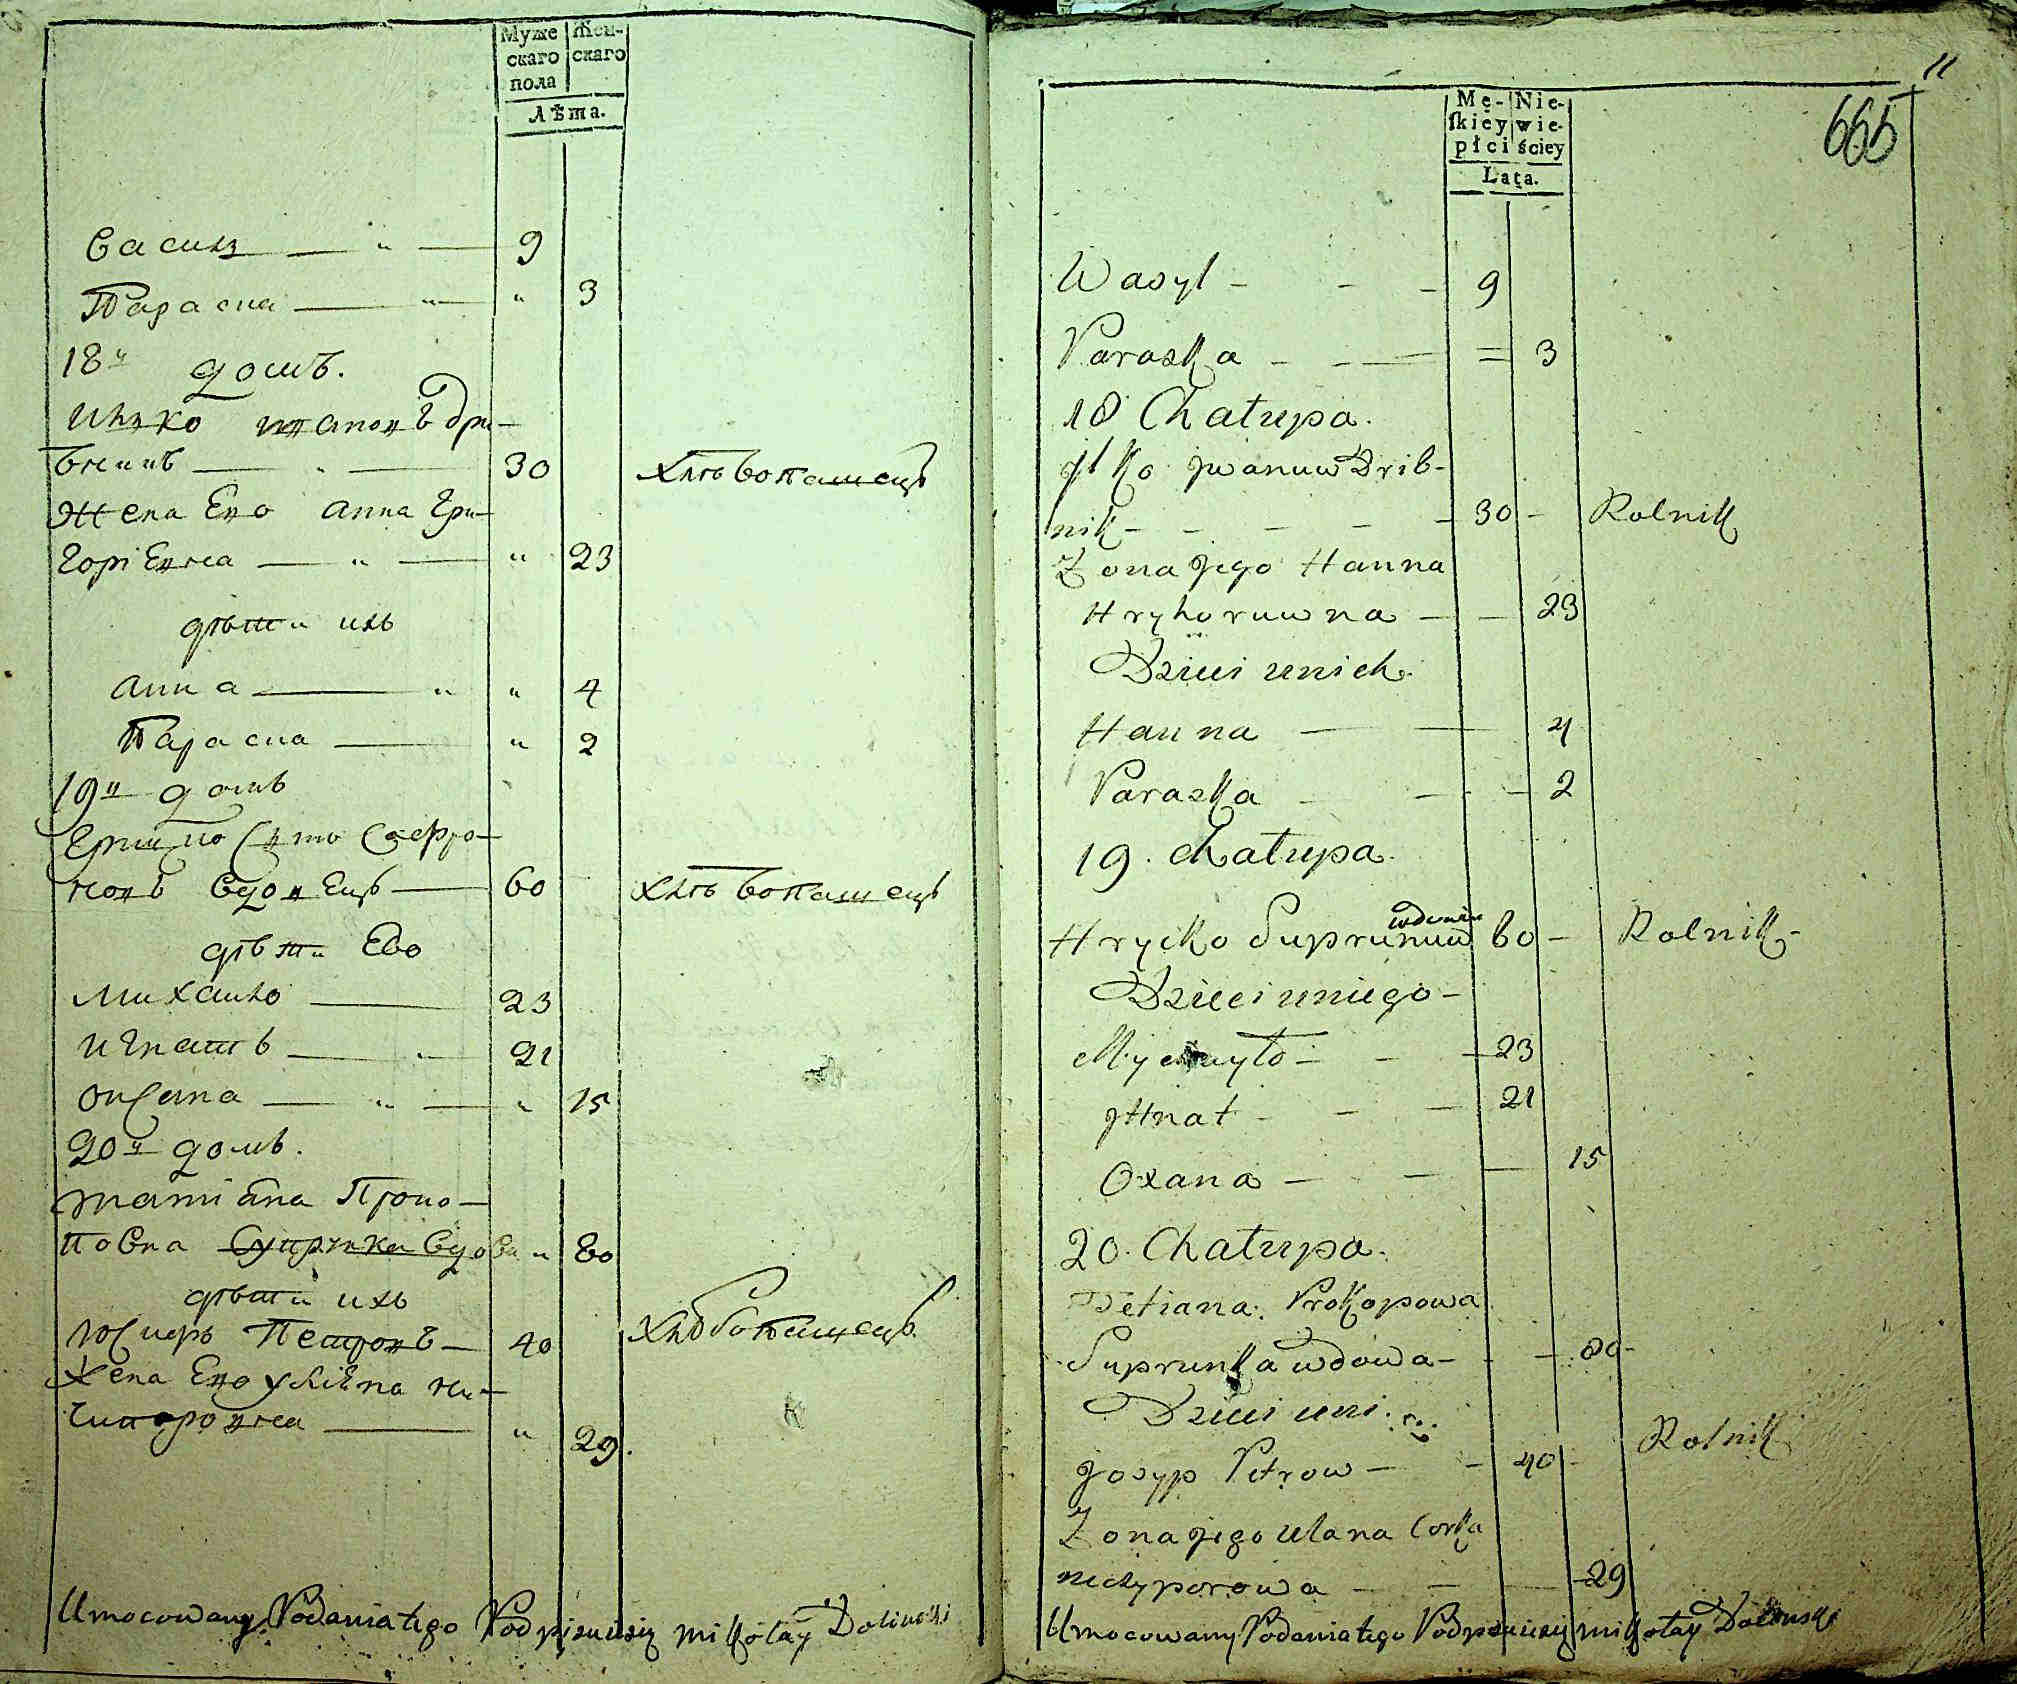 Муже
скаго
пола
Жен-
скаго
Лѣта.
Василь 9
Параска " 3
18й домъ.
Илко Ивановъ Дри-
бникъ 30 хлѣбопашецъ
Жена Его Анна Гри-
горіевна " 23
дѣти ихъ
Анна " 4
Параска " 2
19й домъ
Грицко Супро-
новъ вдовецъ 60 хлѣбопашецъ
дѣти Его
Михайло 23
Игнатъ 21
Оксана " 15
20й домъ.
Татіана Проко-
повна Супрунка вдова " 80
дѣти ихъ
Юсиеръ Петровъ 40 хлѣбопашецъ
Жена Его Уліяна Ни-
чипоровна " 29.
Umocowany Podania tego Podpisuie się Mikołay Dolinski
11
665
Mę-
skiey
płci
Nie-
wie-
ściey
Lata.
Wasyl 9
Paraska = 3
18 Chatupa.
Jlko Jwanuw Drib-
nik 30 Rolnik
Zona Jego Hanna
Hryhoruwna 23
Dzieci unich.
Hanna 4
Paraska 2
19. Chatupa.
wdowiec
Hrycko Suprunuw 60 Rolnik
Dzieci uniego
Mychayło 23
Jhnat 21
Oxana 15
20. Chatupa.
Tetiana Prokopowa
Suprunka wdowa 80
Dzieci uni.
Josyp Petrow 40 Rolnik
Zona jego Ulana Corka
Niczyporowa 29
Umocowany Podania tego Podpisuie się Mikołay Dolinski